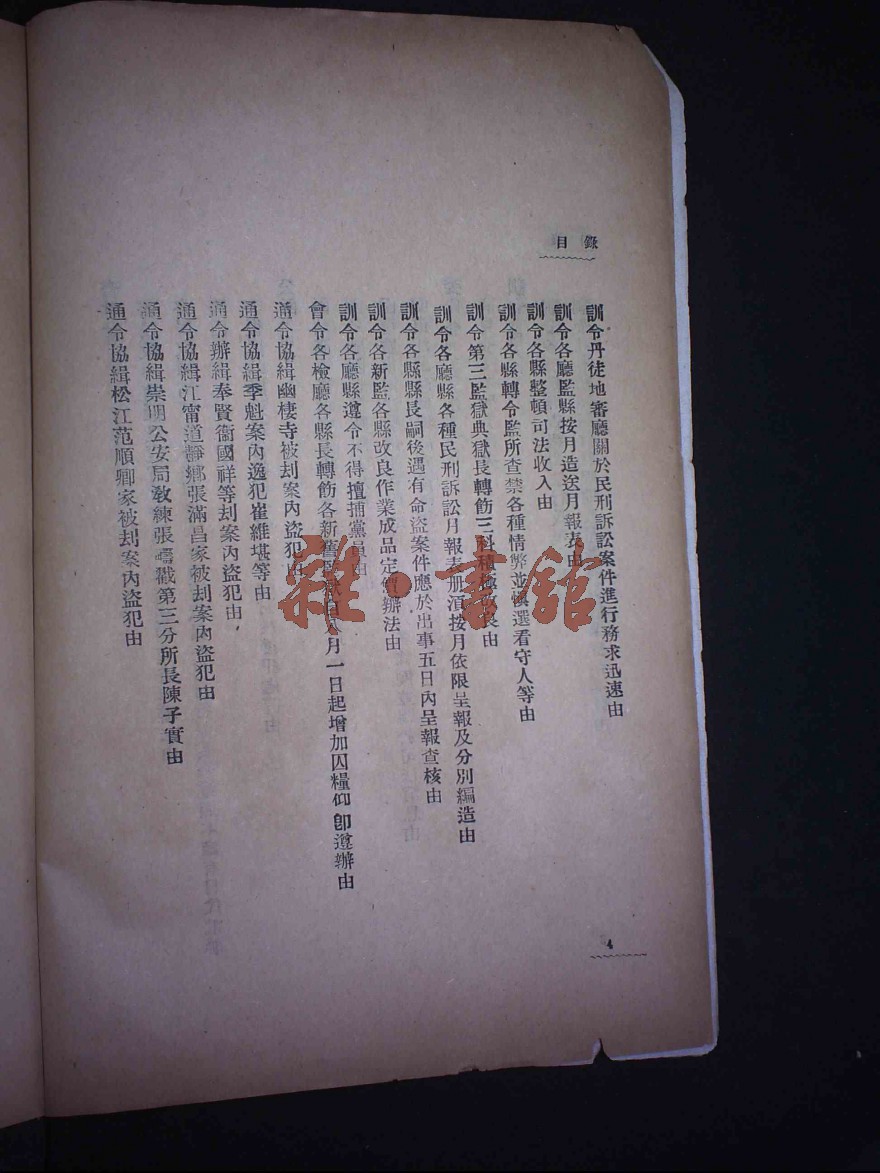 目錄
訓令丹徒地審廳關於民刑訴訟案件進行務求迅速由
訓令各廳監縣按月造送月報表由
訓令各縣整頓司法收入由
訓令各縣轉令監所查禁各種情弊並慎選看守人等由
訓令第三監獄典獄長轉飭三科積極改良由
訓令各廳縣各種民刑訴訟月報表册須按月依限呈報及分別編造由
訓令各縣縣長嗣後遇有命盜案件應於出事五日內呈報查核由
訓令各新監各縣改良作業成品定價辦法由
訓令各廳縣遵令不得擅捕黨員由
會令各檢廳各縣長轉飭各新舊監獄自八月一日起增加囚糧仰卽遵辦由
通令協緝幽棲寺被刦案內盜犯由
通令協緝季魁案內逸犯崔維堪等由
通令辦緝奉賢衞國祥等刦案內盜犯由
通令協緝江甯道靜鄉張滿昌家被刦案內盜犯由
通令協緝崇明公安局敎練張戳第三分所長陳子實由
通令協緝松江范順卿家被刦案內盜犯由
4
雜·書館